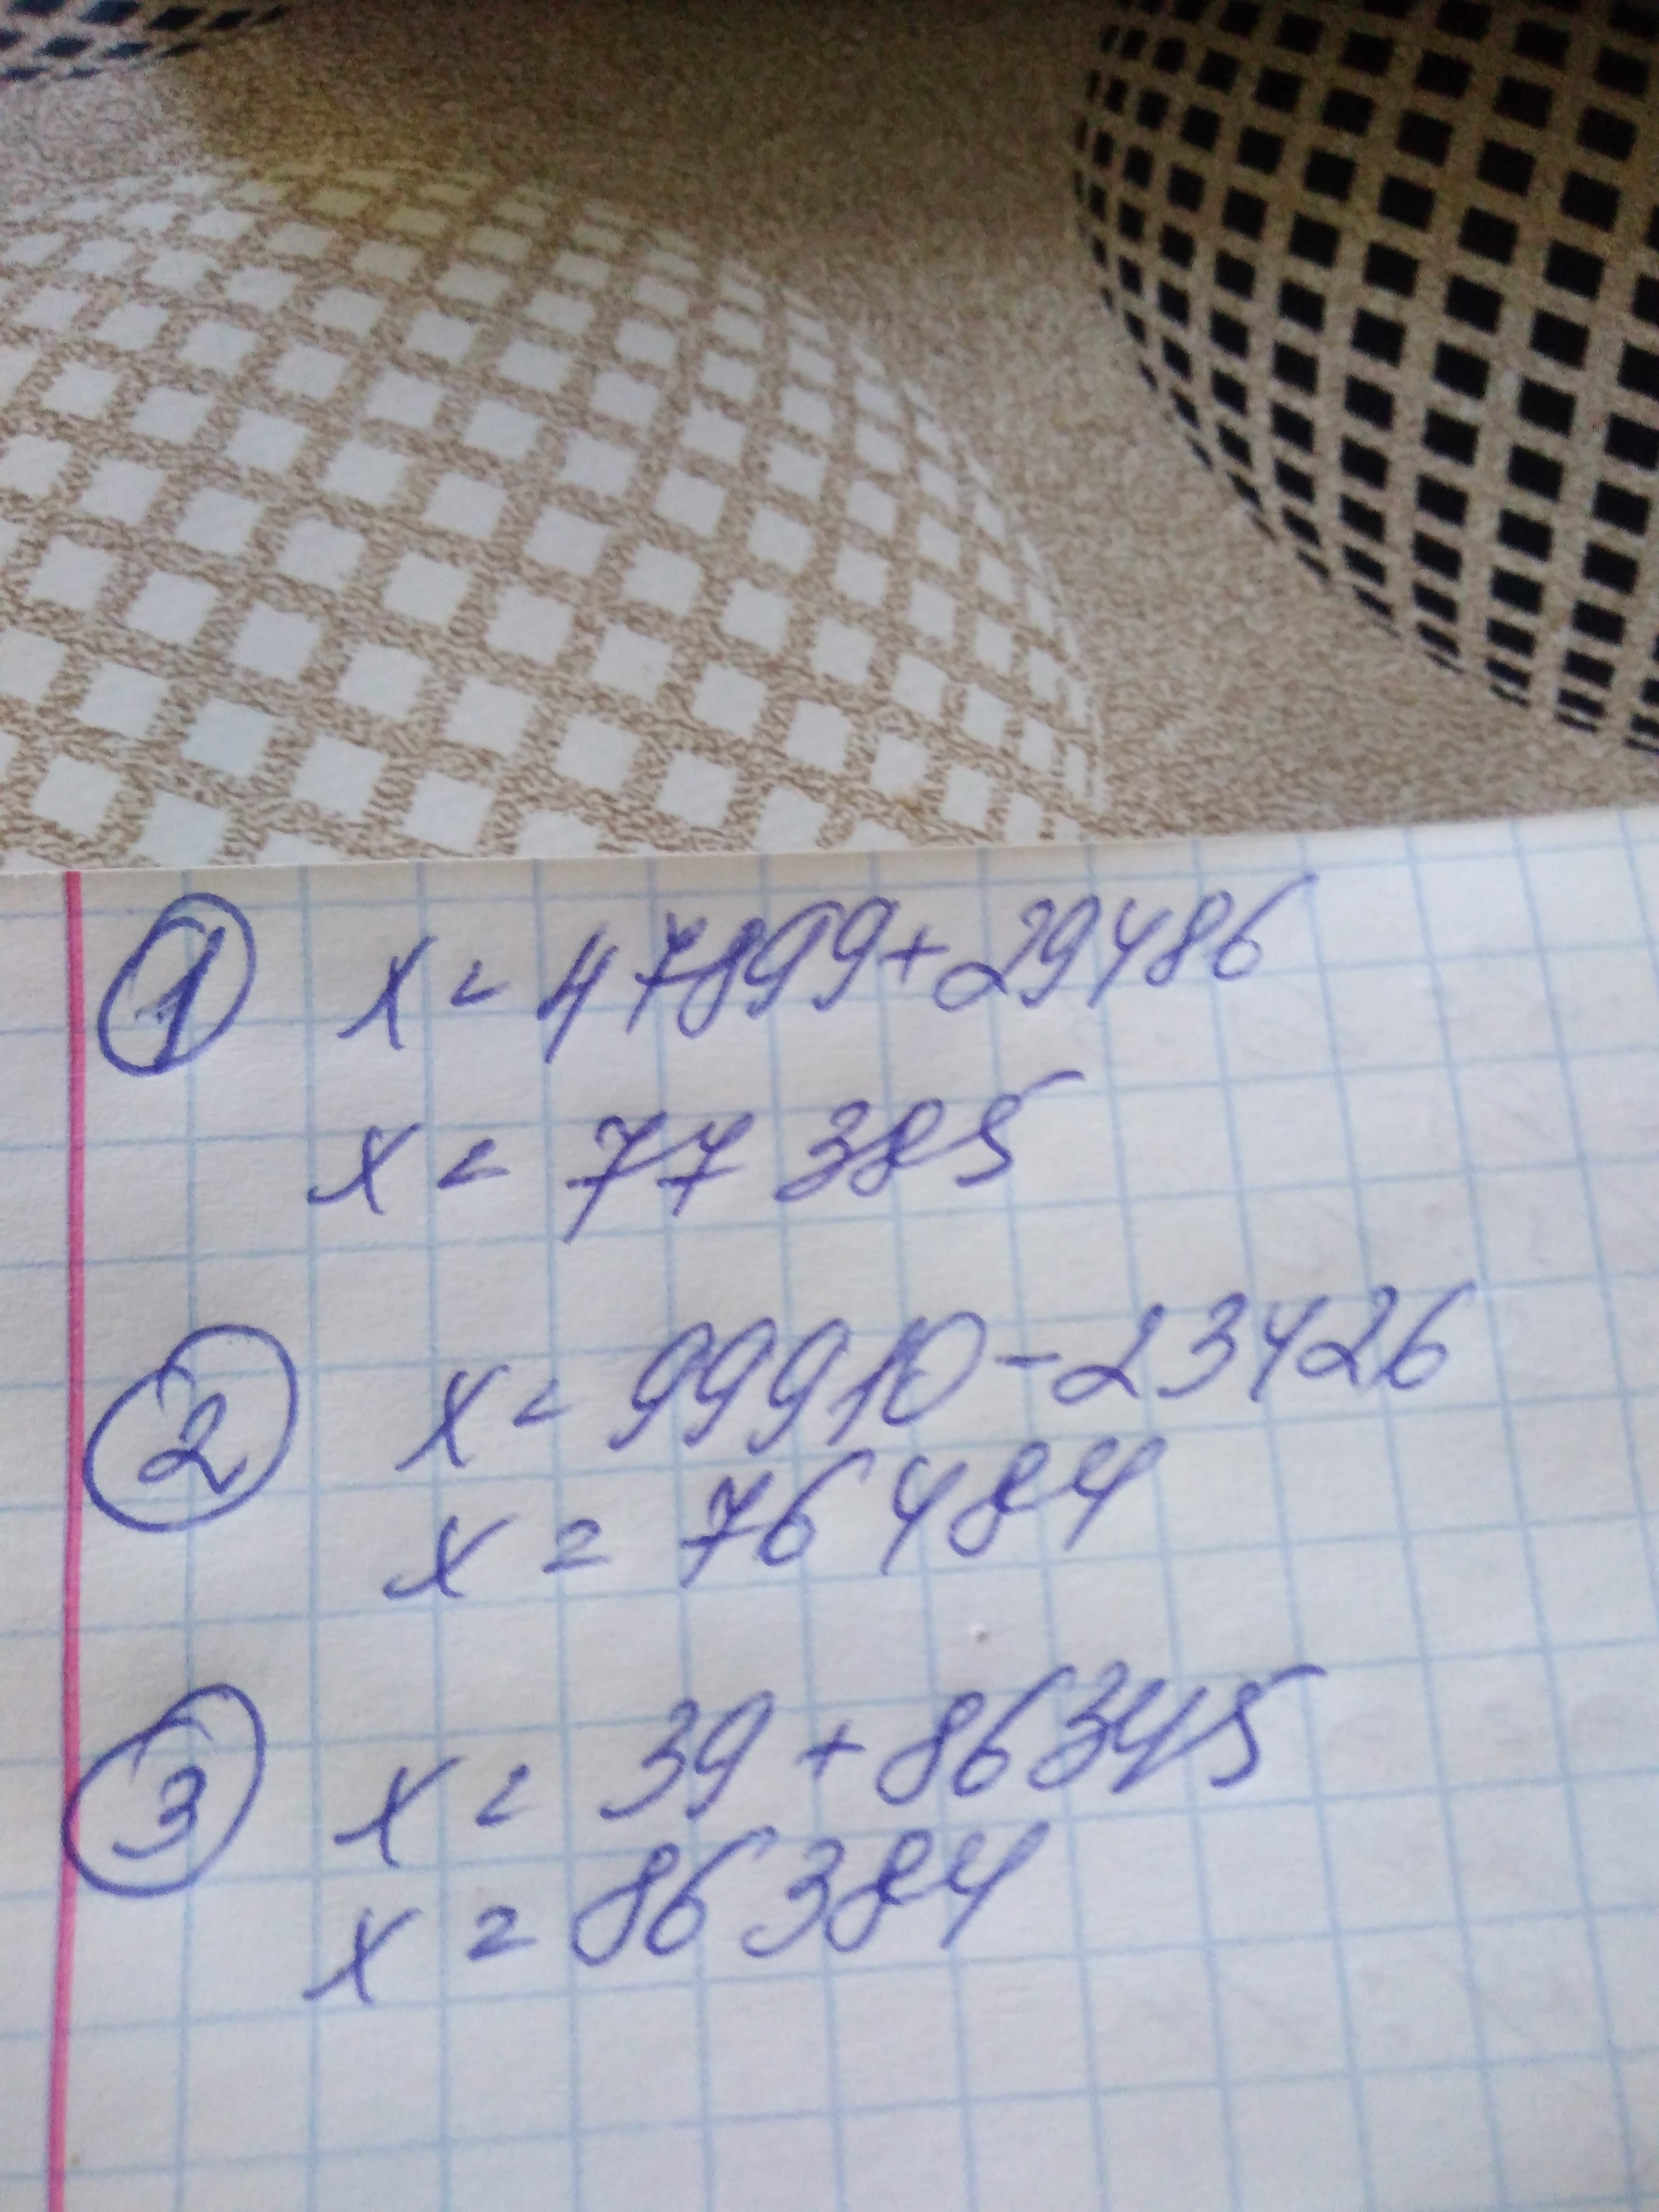 1 x = 47899 + 29486
x = 77 385
2 x = 99910 - 23426
x = 76 484
3 x = 39 + 86345
x = 86 384